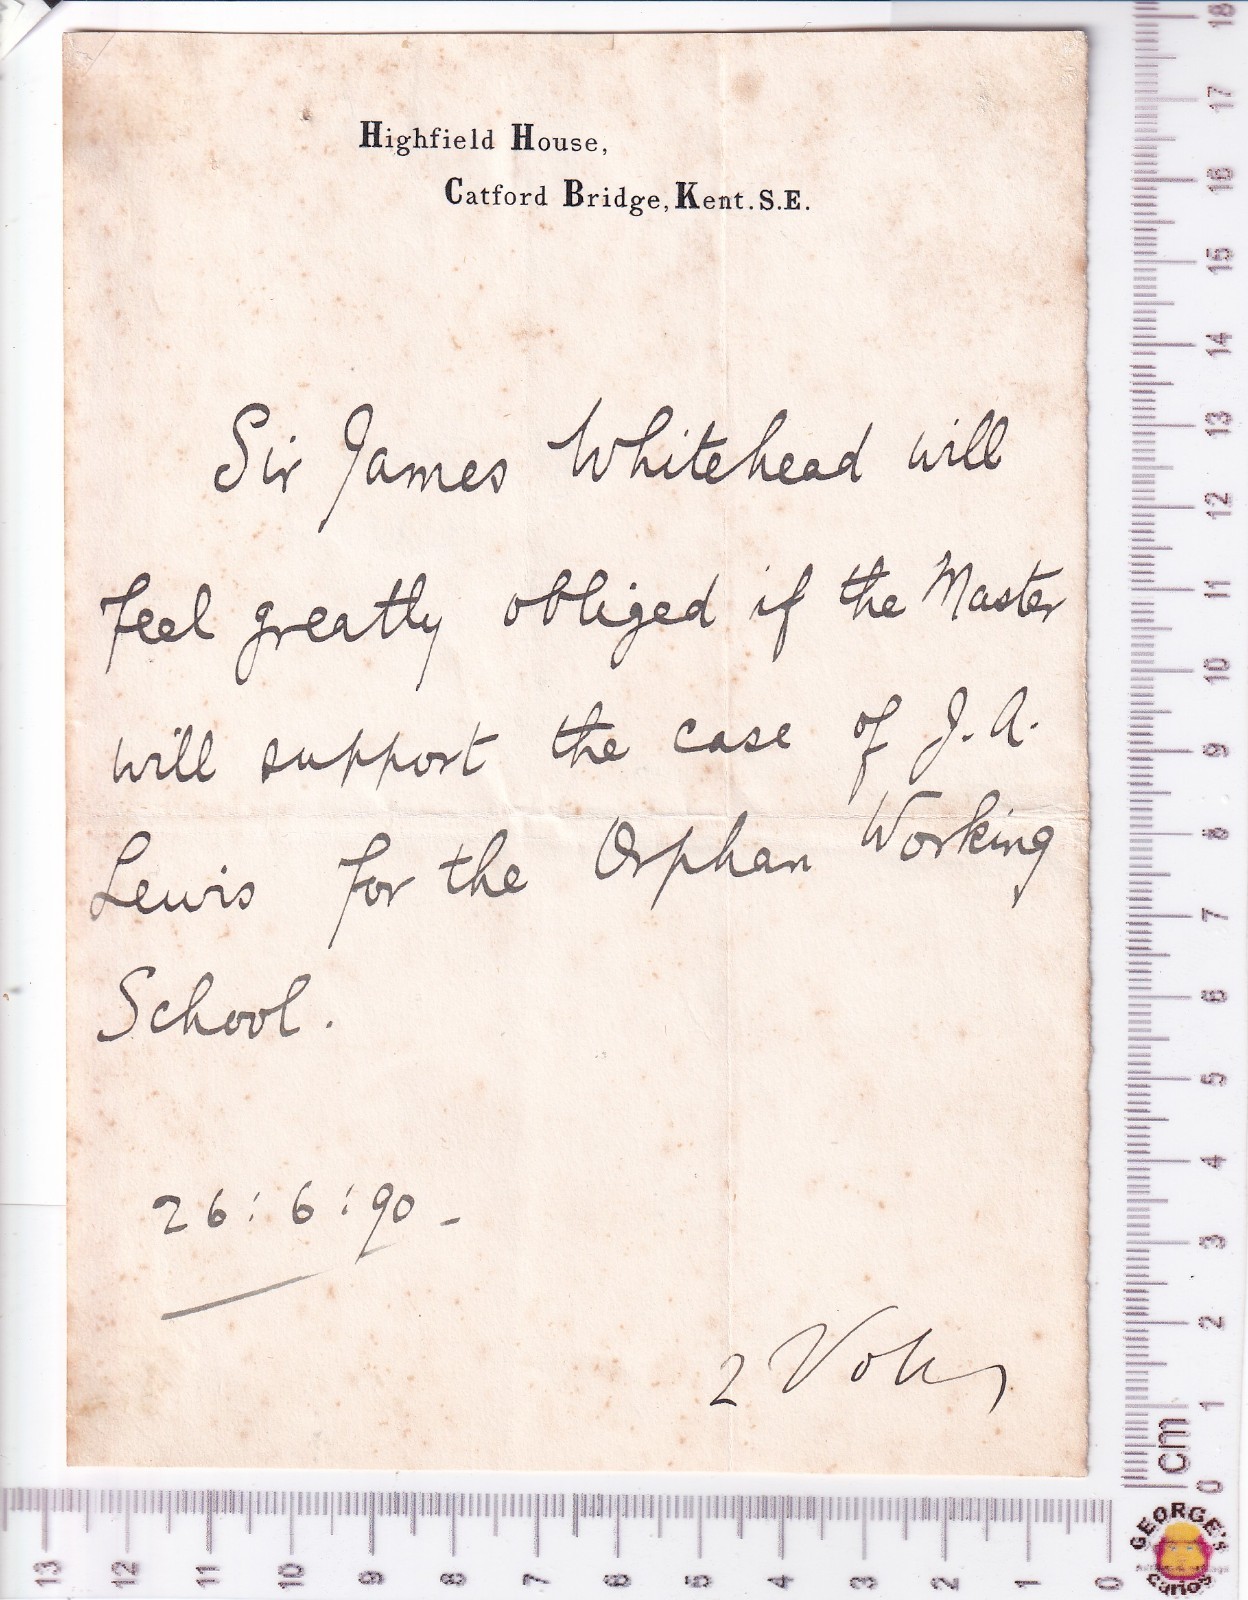 Highfield House,
Catford Bridge, Kent. S.E.
Sir James Whitehead will
feel greatly obliged if the Master
will support the case of J. A.
Lewis for the Orphan Working
School.
26:6:90-
2 Votes
18
17
16
15
14
13
12
11
10
9
8
7
6
5
4
3
2
1
0
cm
13 12 11 10 9 8 7 6 5 4 3 2 1 0
GEORGE's
curios